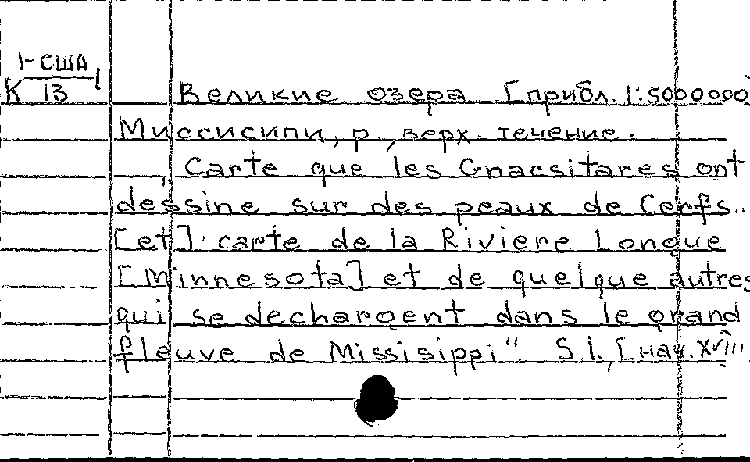 1-США
К 13
Великие озера [прибл. 1:5000000
Миссисипи, р., верх. течение.
Carte que les Gnacsitares ont
dessine sur des peaux de Cerfs..
[et]: carte de la Riviere Longue
[Minnesota] et de quelque autres
qui se dechargent dans le grand
fleuve de Missisippi" S.l., [нач. XVIII